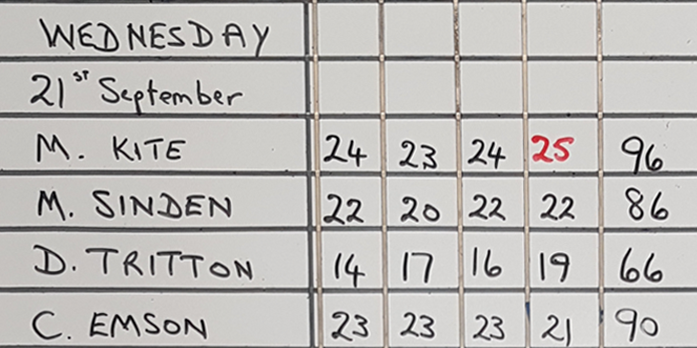 WEDNESDAY
21st September
M. KITE 24 23 24 25 96
M. SINDEN 22 20 22 22 86
D. TRITTON 14 17 16 19 66
C. EMSON 23 23 23 21 90